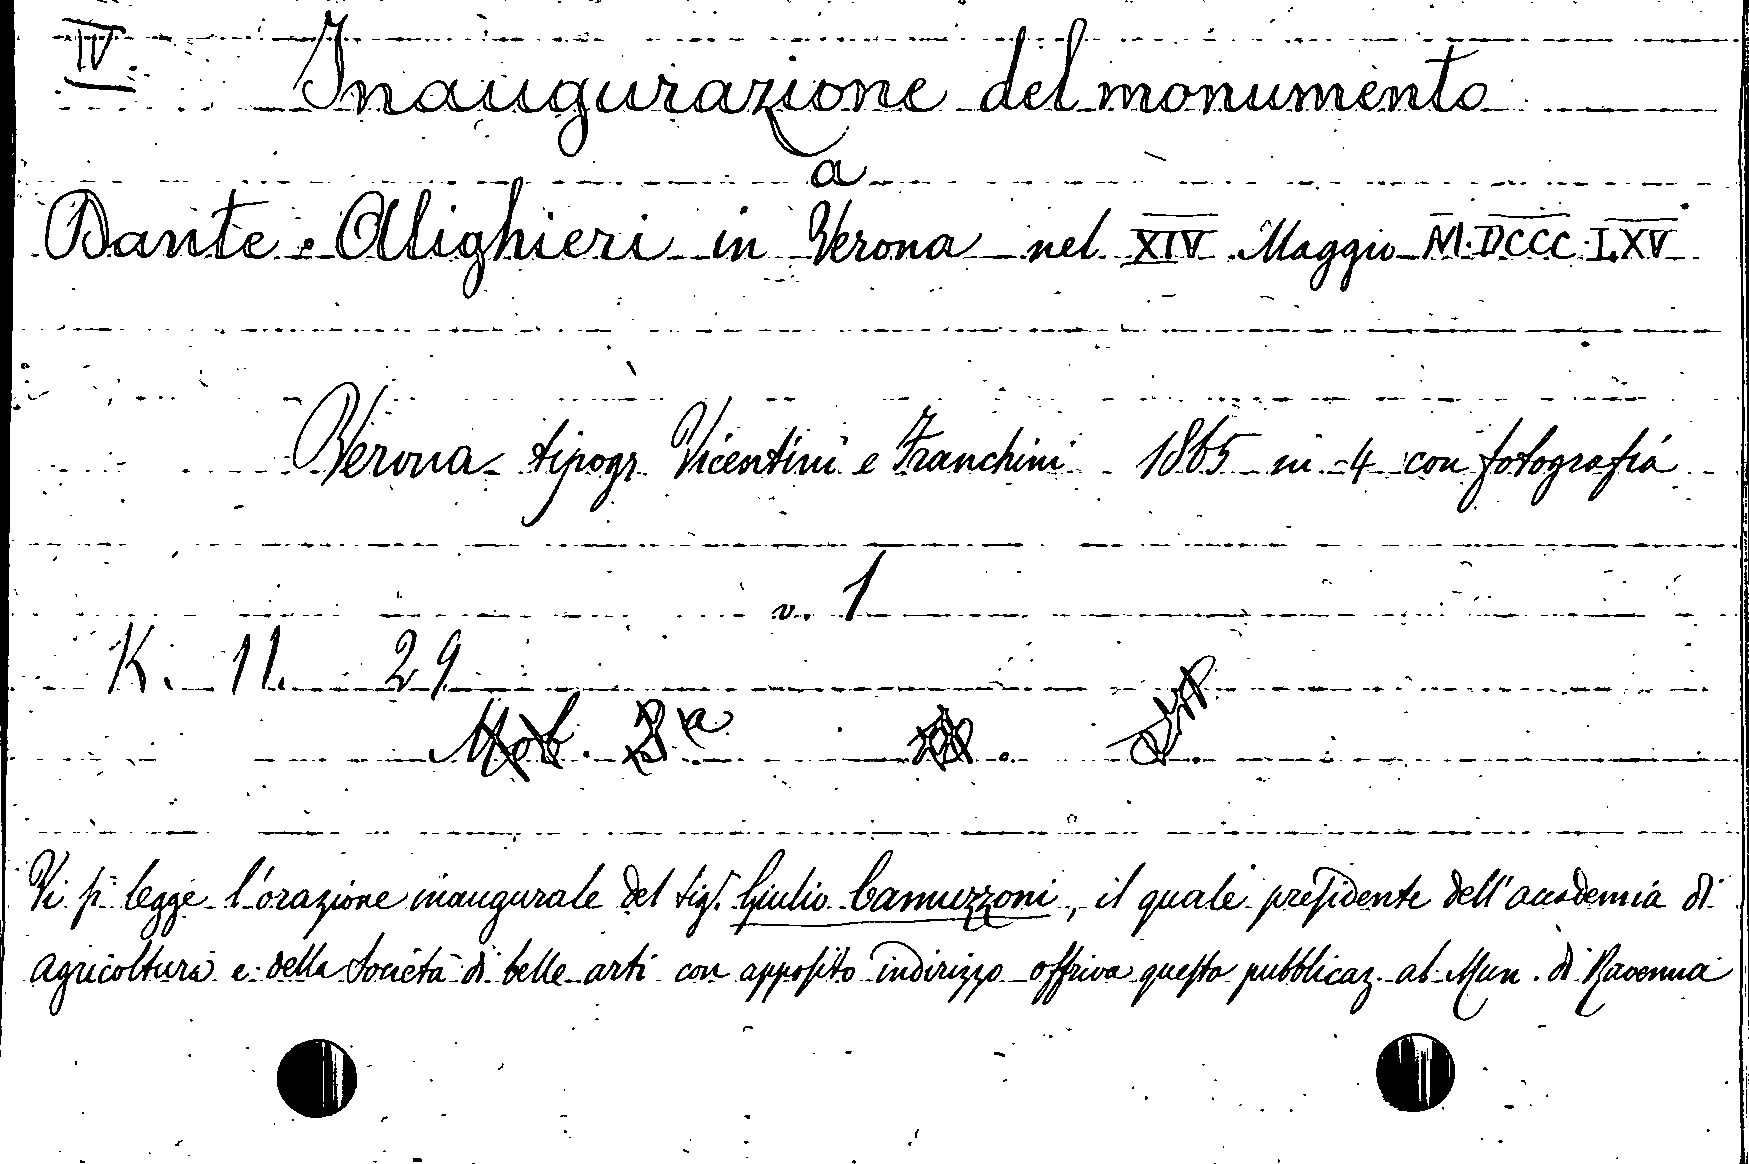 IV
Inaugurazione del monumento
a
Dante Alighieri in Verona nel XIV Maggio M.DCCC.LXV
Verona tipogr. Vicentini e Franchini 1865 in 4 con fotografia
v. 1
K. 11. 29
Mob. 3a
Vi si legge l'orazione inaugurale del sigr. Giulio Camuzzoni, il quale presidente dell'accademia di
agricoltura e della Società di belle arti con apposito indirizzo offriva questa pubblicaz. al Mun. di Ravenna